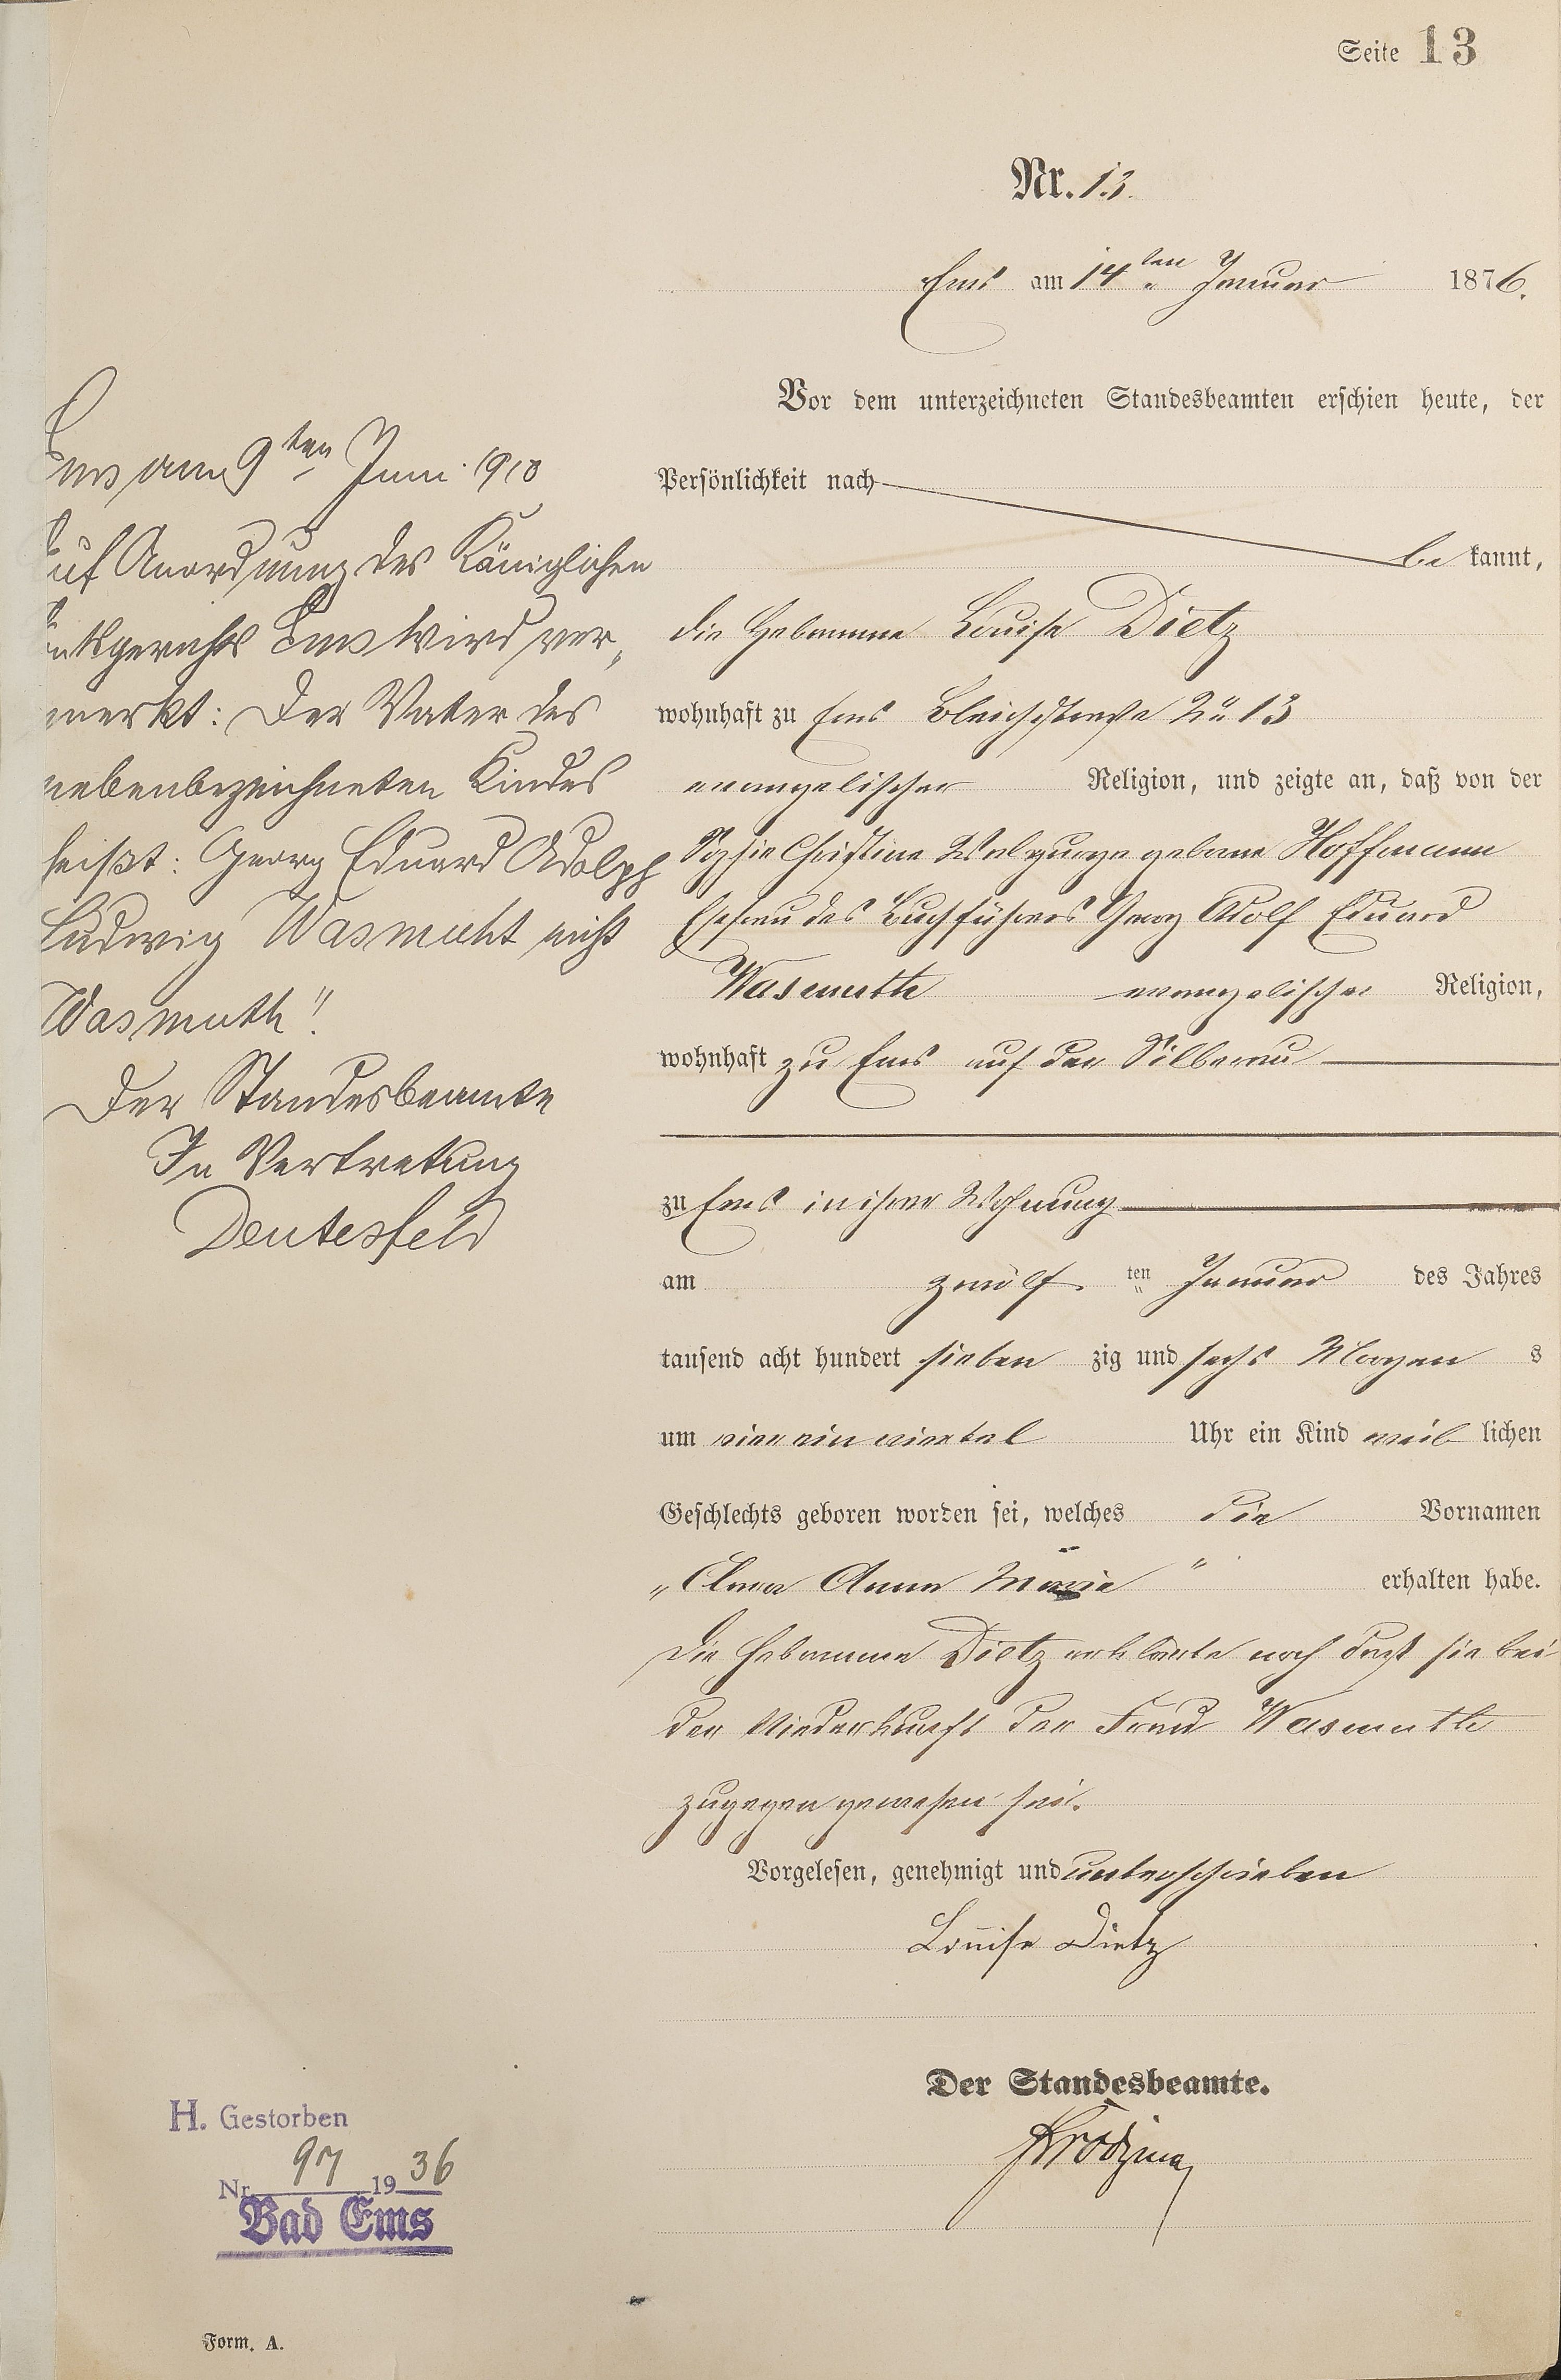 Seite 13
Nr. 13.
Ems am 14ten Januar 1876.
Vor dem unterzeichneten Standesbeamten erschien heute, der
Persönlichkeit nach
be kannt,
die Hebamme Louise Dietz
wohnhaft zu Ems Bleichstraße No 13
evangelischer Religion, und zeigte an, daß von der
Sophie Christine Walpurga geborne Hoffmann
Ehefrau des Buchführers Georg Adolf Eduard
Wasmuth evangelischer Religion,
wohnhaft zu Ems auf der Silberau
zu Ems in ihrer Wohnung
am zwölf ten Januar des Jahres
tausend acht hundert sieben zig und sechs Morgen s
um vier ein viertel Uhr ein Kind weib lichen
Geschlechts geboren worden sei, welches die Vornamen
„Elma Anna Marie" erhalten habe.
Die Hebamme Dietz erklärte noch daß sie bei
der Niederkunft der Frau Wasmuth
zugegen gewesen sei.
Vorgelesen, genehmigt und unterschrieben
Louise Dietz
Der Standesbeamte.
Ems am 9ten Juni 1910
Auf Anordnung des Königlichen
Amtsgerichts Ems wird ver„
merkt: Der Vater des
nebenbezeichneten Kindes
heißt: Georg Eduard Adolph
Ludwig Wasmuht nicht
Wasmuth".
Der Standesbeamte
In Vertretung
Deutesfeld
H. Gestorben
Nr. 97 1936
Bad Ems
Form. A.